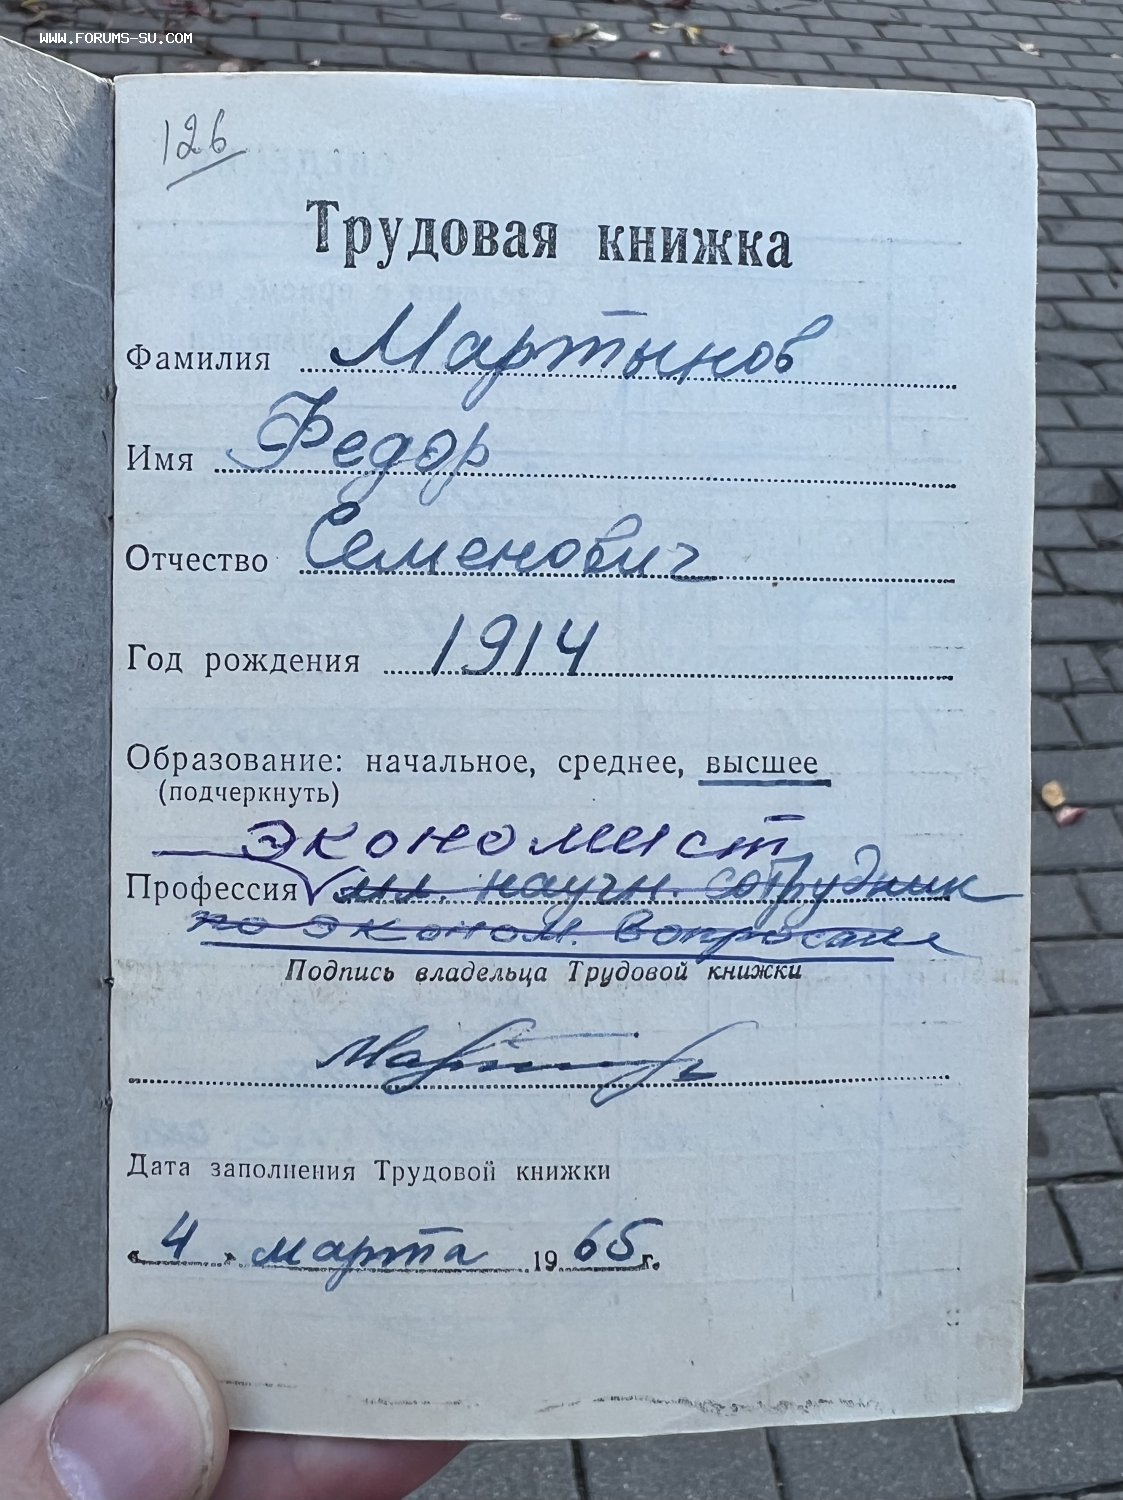 WWW.FORUMS-SU.COM
126
Трудовая книжка
Фамилия Мартынов
Имя Федор
Отчество Семенович
Год рождения 1914
Образование: начальное, среднее, высшее
(подчеркнуть)
экономист
Профессия мл. научн. сотрудник
по эконом. вопросам
Подпись владельца Трудовой книжки
Дата заполнения Трудовой книжки
«4» марта 1965г.